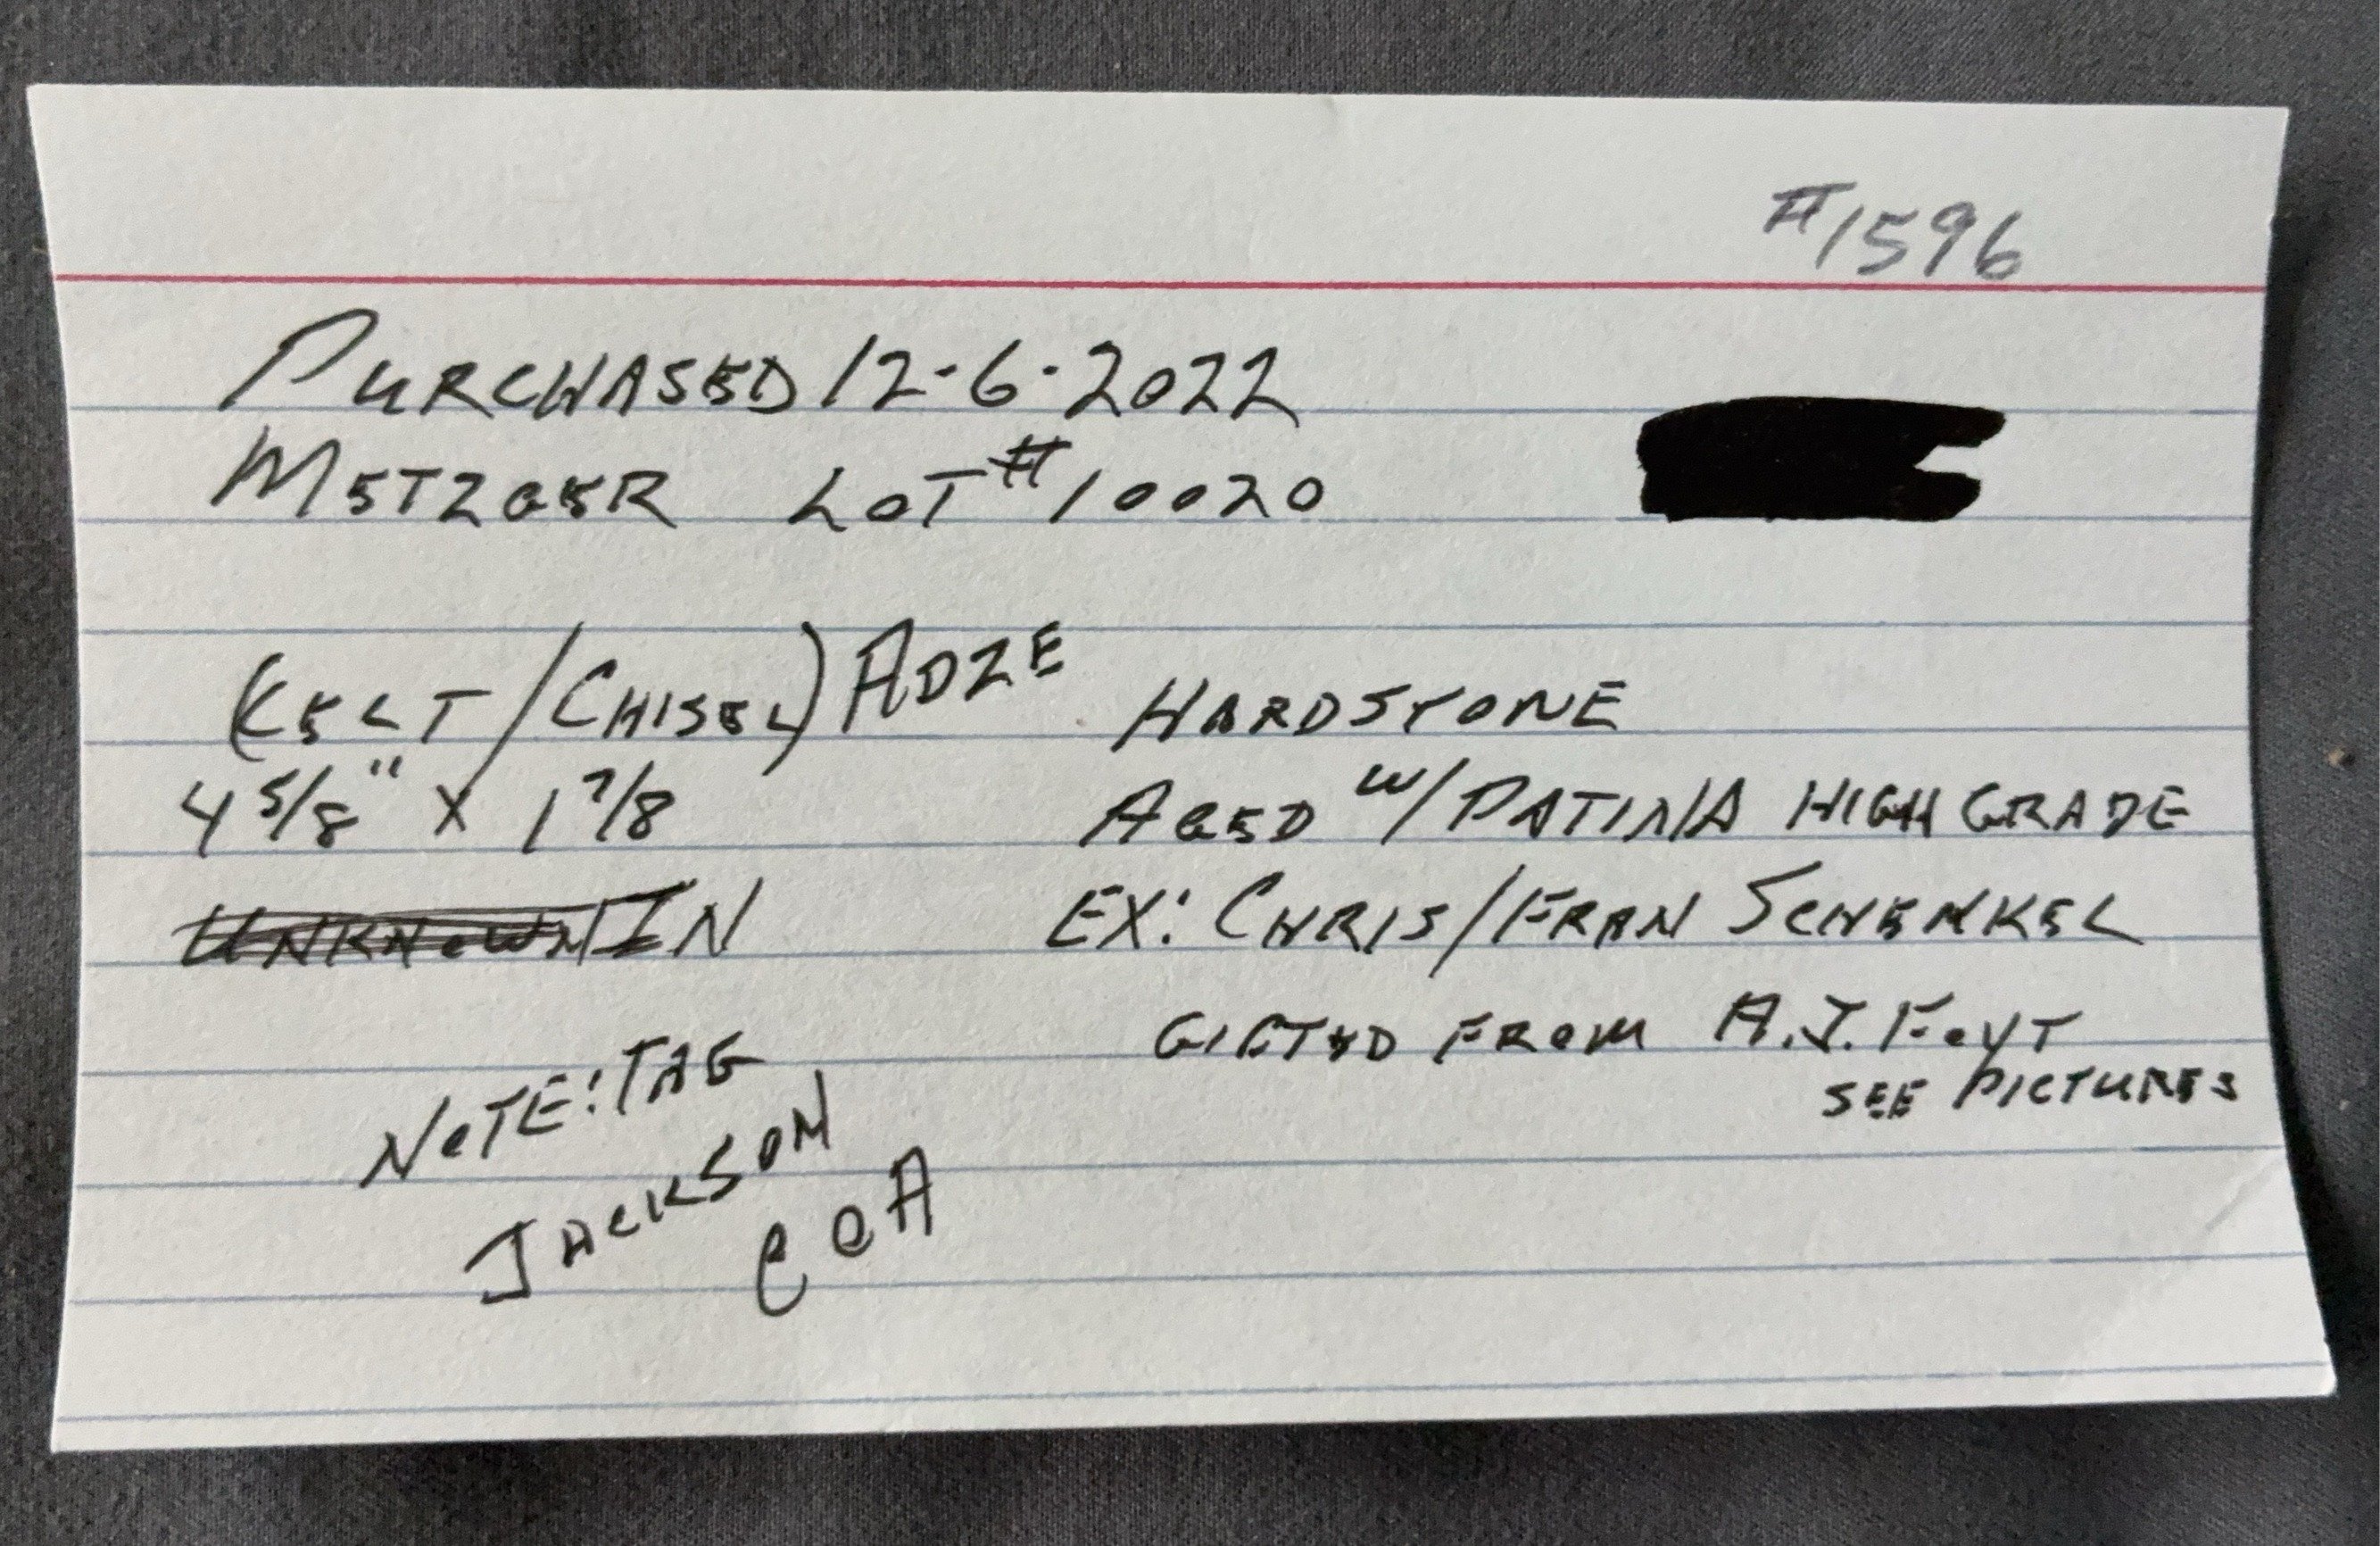 #1596
PURCHASED 12-6-2022
METZGER LOT #10020
(CELT/CHISEL) ADZE
HARDSTONE
4 5/8" X 1 7/8
AGED W/PATINA HIGH GRADE
UNKNOWN IN
EX: CHRIS/FRAN SCHENKEL
GIFTED FROM A.J. FOYT
SEE PICTURES
NOTE: TAG
JACKSON
COA